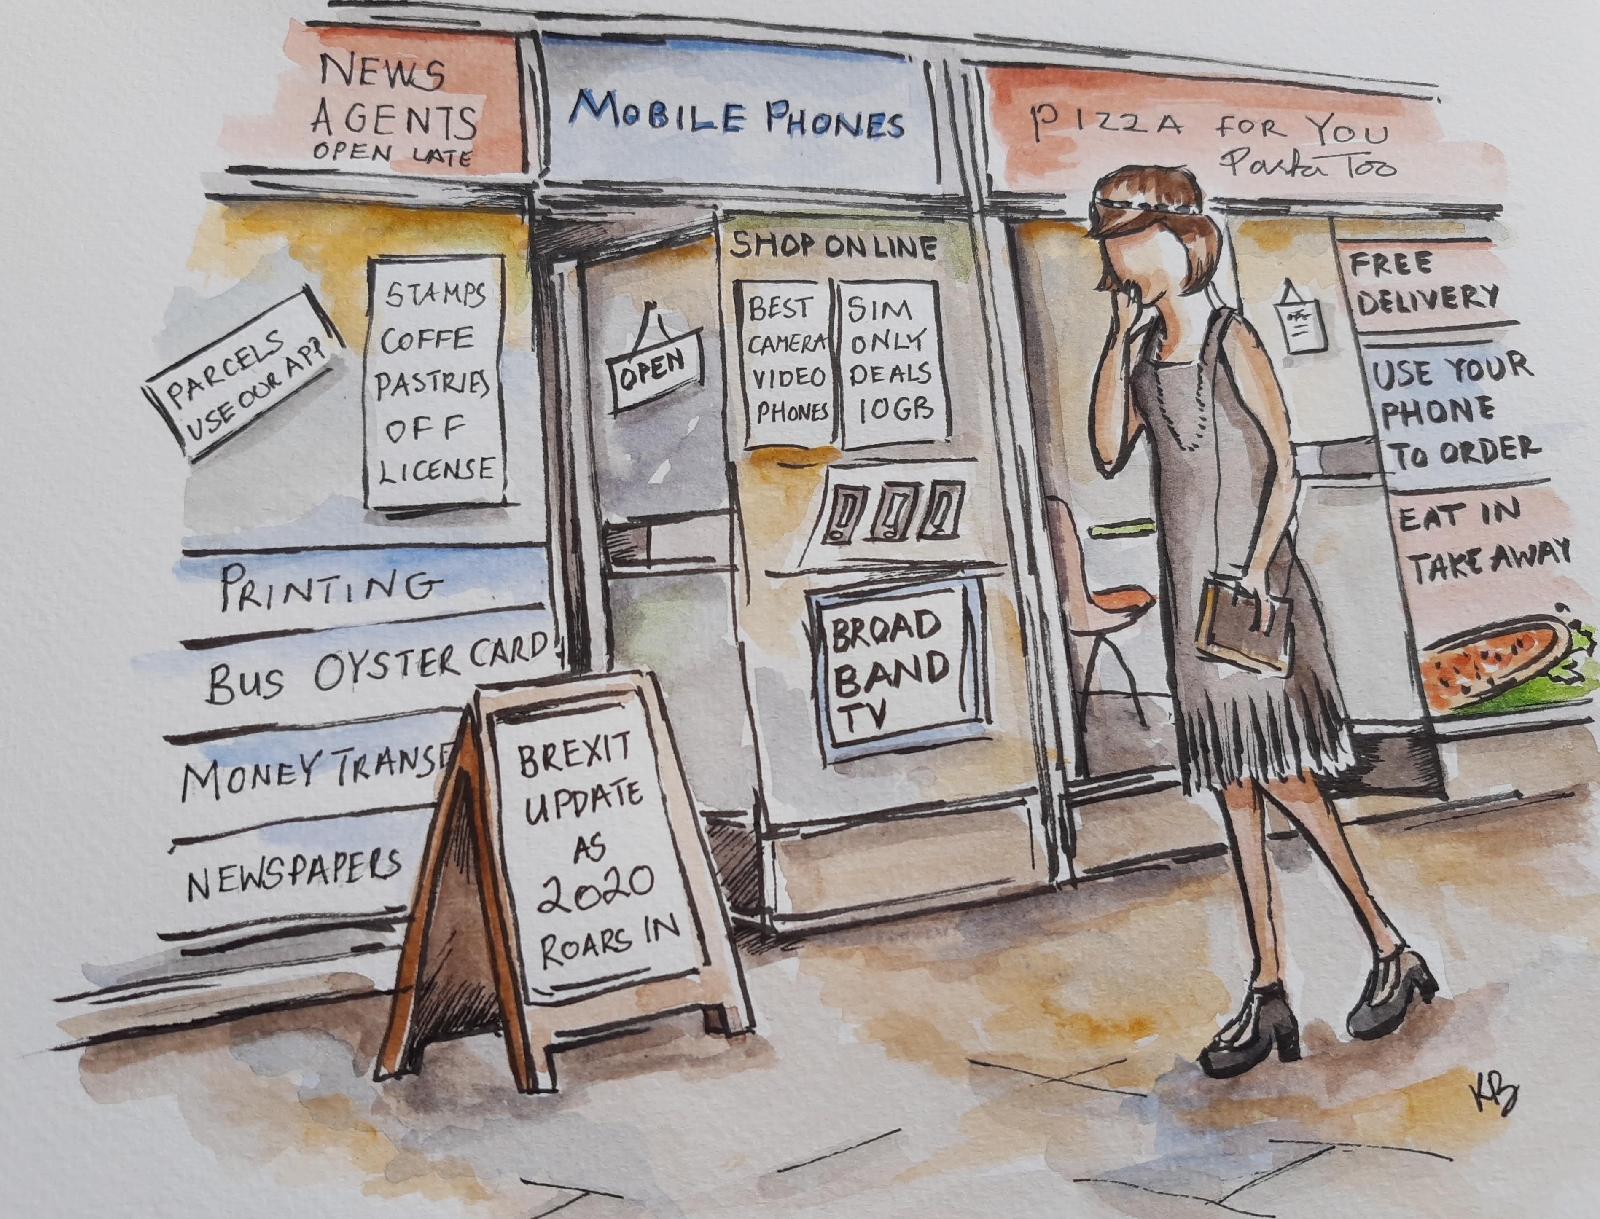 NEWS
AGENTS
OPEN LATE
MOBILE PHONES
PIZZA FOR YOU
Pasta Too
PARCELS
USE OUR APP
STAMPS
COFFE
PASTRIES
OFF
LICENSE
OPEN
SHOP ONLINE
BEST
CAMERA
VIDEO
PHONES
SIM
ONLY
DEALS
10GB
BROAD
BAND
TV
FREE
DELIVERY
USE YOUR
PHONE
TO ORDER
EAT IN
TAKE AWAY
PRINTING
BUS OYSTER CARD
MONEY TRANSF
NEWSPAPERS
BREXIT
UPDATE
AS
2020
ROARS IN
KB